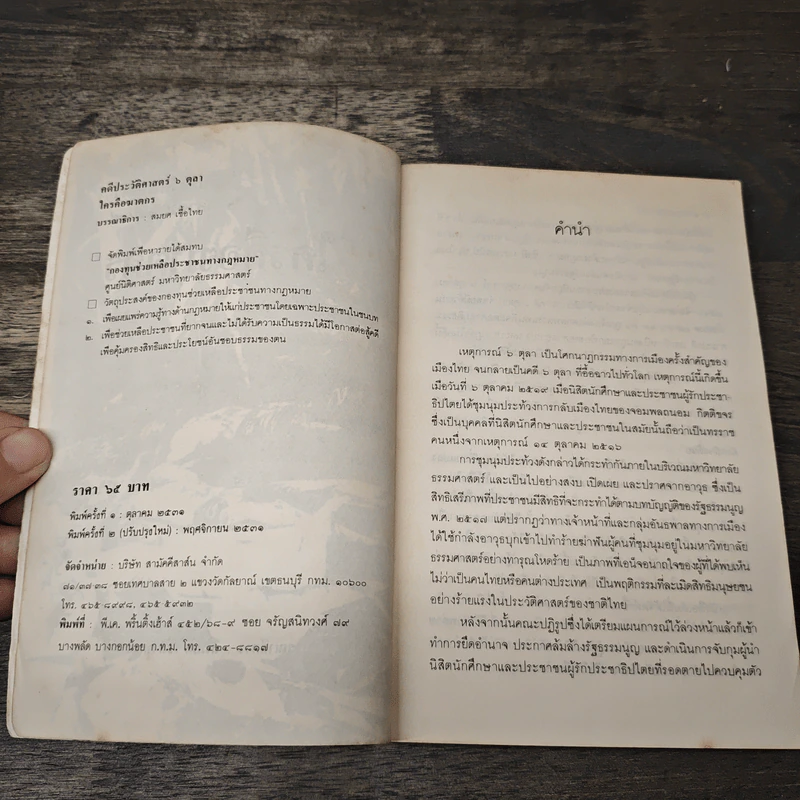 คดีประวัติศาสตร์ ๖ ตุลา
ใครคือฆาตกร
บรรณาธิการ : สมยศ เชื้อไทย
จัดพิมพ์เพื่อหารายได้สมทบ
"กองทุนช่วยเหลือประชาชนทางกฎหมาย"
ศูนย์นิติศาสตร์ มหาวิทยาลัยธรรมศาสตร์
วัตถุประสงค์ของกองทุนช่วยเหลือประชาชนทางกฎหมาย
๑. เพื่อเผยแพร่ความรู้ทางด้านกฎหมายให้แก่ประชาชนโดยเฉพาะประชาชนในชนบท
๒. เพื่อช่วยเหลือประชาชนที่ยากจนและไม่ได้รับความเป็นธรรมได้มีโอกาสต่อสู้คดี
เพื่อคุ้มครองสิทธิและประโยชน์อันชอบธรรมของตน
ราคา ๖๕ บาท
พิมพ์ครั้งที่ ๑ : ตุลาคม ๒๕๓๑
พิมพ์ครั้งที่ ๒ (ปรับปรุงใหม่) : พฤศจิกายน ๒๕๓๑
จัดจำหน่าย : บริษัท สามัคคีสาส์น จำกัด
๗๑/๓๗-๓๘ ซอยเทศบาลสาย ๒ แขวงวัดกัลยาณ์ เขตธนบุรี กทม. ๑๐๖๐๐
โทร. ๔๖๕-๘๙๙๘, ๔๖๕-๕๙๓๒
พิมพ์ที่ : พี.เค. พริ้นติ้งเฮ้าส์ ๔๕๒/๖๘-๙ ซอย จรัญสนิทวงศ์ ๗๙
บางพลัด บางกอกน้อย ก.ท.ม. โทร. ๔๒๔-๘๘๑๗
คำนำ
เหตุการณ์ ๖ ตุลา เป็นโศกนาฏกรรมทางการเมืองครั้งสำคัญของ
เมืองไทย จนกลายเป็นคดี ๖ ตุลา ที่อื้อฉาวไปทั่วโลก เหตุการณ์นี้เกิดขึ้น
เมื่อวันที่ ๖ ตุลาคม ๒๕๑๙ เมื่อนิสิตนักศึกษาและประชาชนผู้รักประชา-
ธิปไตยได้ชุมนุมประท้วงการกลับเมืองไทยของจอมพลถนอม กิตติขจร
ซึ่งเป็นบุคคลที่นิสิตนักศึกษาและประชาชนในสมัยนั้นถือว่าเป็นทรราช
คนหนึ่งจากเหตุการณ์ ๑๔ ตุลาคม ๒๕๑๖
การชุมนุมประท้วงดังกล่าวได้กระทำกันภายในบริเวณมหาวิทยาลัย
ธรรมศาสตร์ และเป็นไปอย่างสงบ เปิดเผย และปราศจากอาวุธ ซึ่งเป็น
สิทธิเสรีภาพที่ประชาชนมีสิทธิที่จะกระทำได้ตามบทบัญญัติของรัฐธรรมนูญ
พ.ศ. ๒๕๑๗ แต่ปรากฏว่าทางเจ้าหน้าที่และกลุ่มอันธพาลทางการเมือง
ได้ใช้กำลังอาวุธบุกเข้าไปทำร้ายฆ่าฟันผู้คนที่ชุมนุมอยู่ในมหาวิทยาลัย
ธรรมศาสตร์อย่างทารุณโหดร้าย เป็นภาพที่เอน็จอนาถใจของผู้ที่ได้พบเห็น
ไม่ว่าเป็นคนไทยหรือคนต่างประเทศ เป็นพฤติกรรมที่ละเมิดสิทธิมนุษยชน
อย่างร้ายแรงในประวัติศาสตร์ของชาติไทย
หลังจากนั้นคณะปฏิรูปซึ่งได้เตรียมแผนการณ์ไว้ล่วงหน้าแล้วก็เข้า
ทำการยึดอำนาจ ประกาศล้มล้างรัฐธรรมนูญ และดำเนินการจับกุมผู้นำ
นิสิตนักศึกษาและประชาชนผู้รักประชาธิปไตยที่รอดตายไปควบคุมตัว